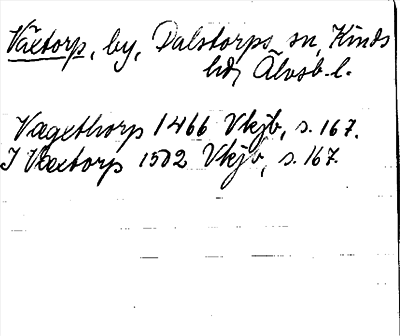 Växtorp, by, Dalstorps sn, Kinds
hd, Älvsb. l.
Vagethorp 1466 Vkjb, s. 167.
I Vaxtorp 1502 Vkjb, s. 167.